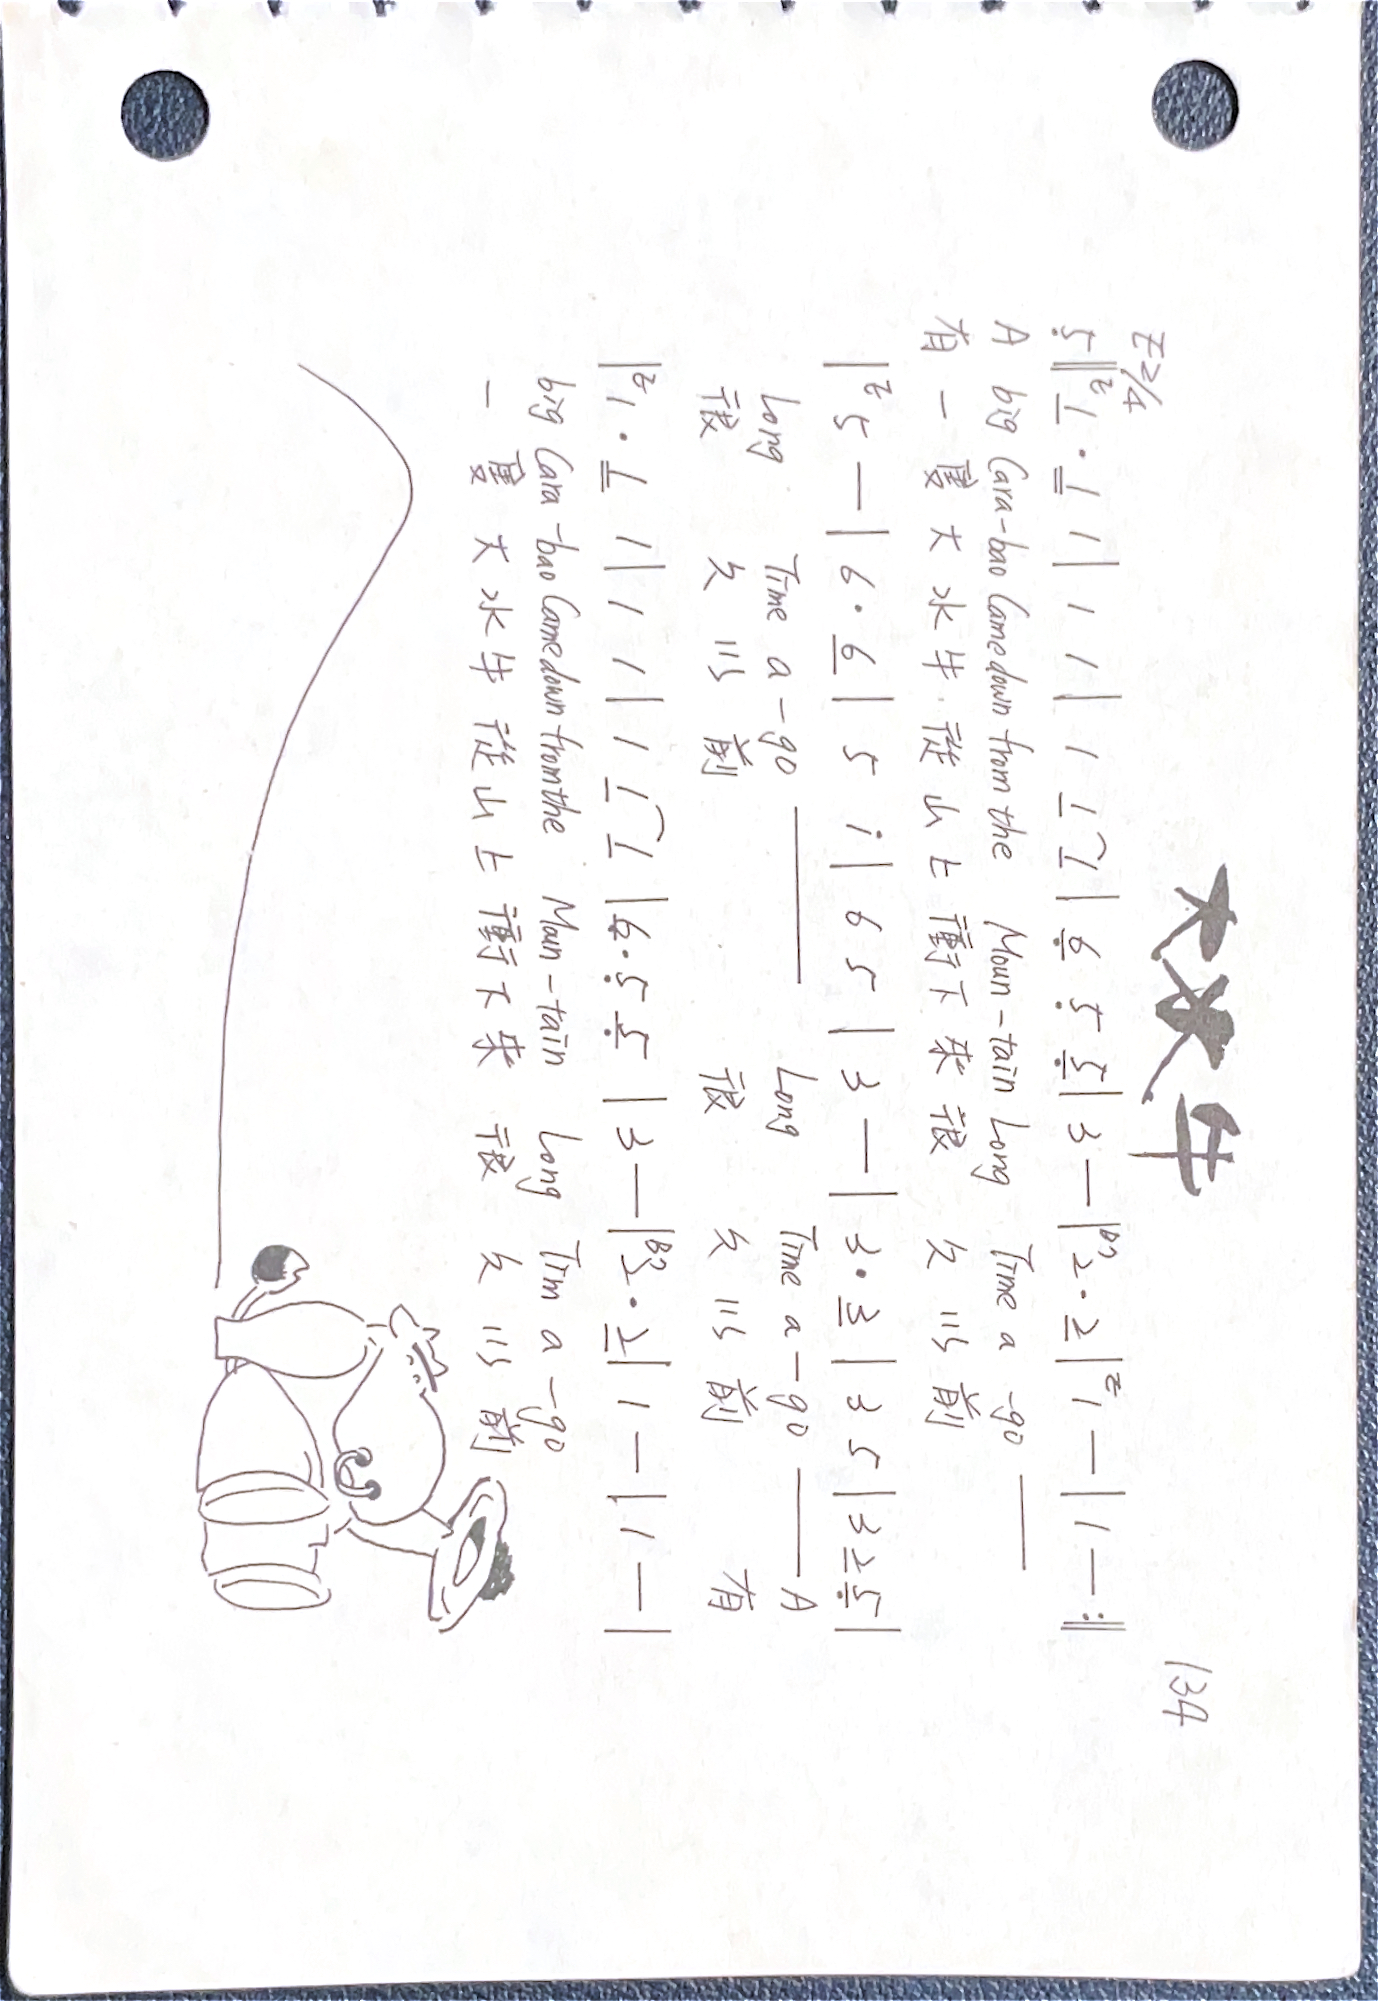 大水牛
134
E 2/4
5̣ ‖ E 1 · 1 1 | 1 1 | 1 1 1 | 6̣ 5̣ 5̣ | 3 — | B7 2 · 2 | E 1 — | 1 — :‖
A big Cara-bao Came down from the Moun-tain Long Time a -go ——
有 一 隻 大 水 牛 從 山 上 衝 下 來 很 久 以 前
| E 5 — | 6 · 6 | 5 i | 6 5 | 3 — | 3 · 3 | 3 5 | 3 2 5̣ |
Long Time a-go —— Long Time a-go —— A
很 久 以 前 很 久 以 前 有
| E 1 · 1 1 | 1 1 | 1 1 1 | 6̣ · 5̣ 5̣ | 3 — | B7 2 · 2 | 1 — | 1 — |
big Cara-bao Came down from the Moun-tain Long Tim a -go
一 隻 大 水 牛 從 山 上 衝 下 來 很 久 以 前